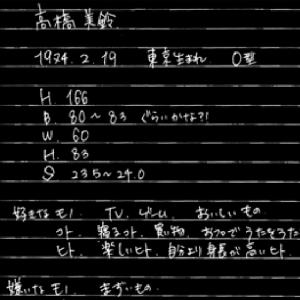 高橋美鈴
1974.2.19 東京生まれ O型
H. 166
B. 80〜83 ぐらいかな?!
W. 60
H. 83
S 23.5〜24.0
好きなモノ. TV. ゲーム. おいしいもの
コト. 寝るコト. 買い物. おフロでうたをうた
ヒト. 楽しいヒト. 自分より身長が高いヒト.
嫌いなモノ. まずいもの.